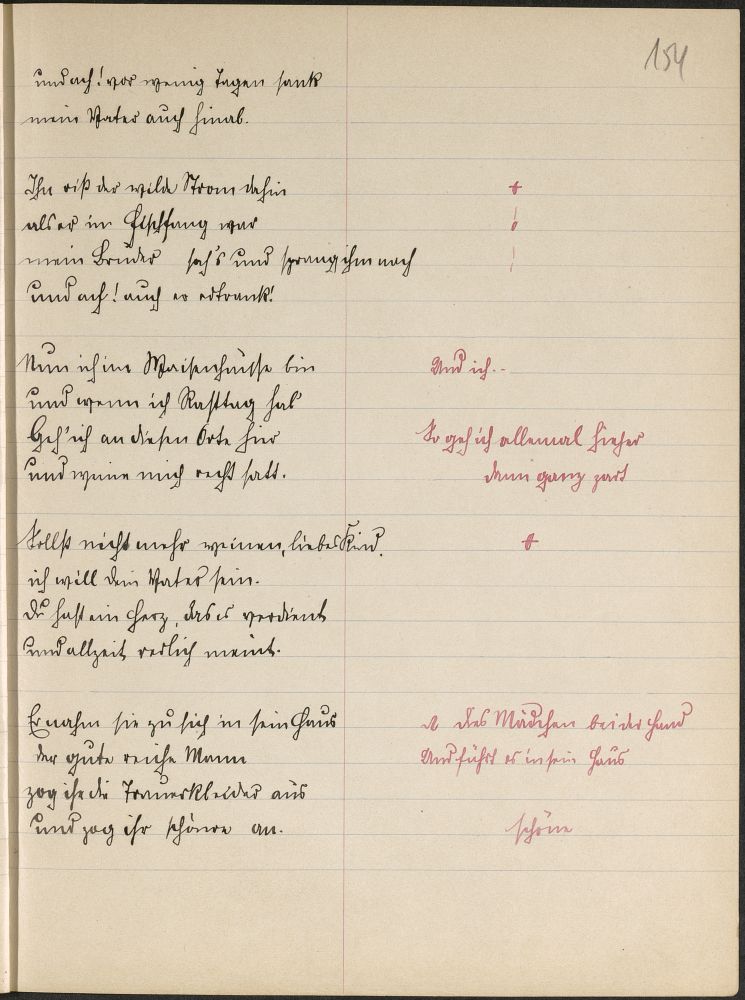 154
und ach! vor wenig Tagen sank
mein Vater auch hinab.
Ihn riß der wilde Strom dahin
als er im Fischfang war
mein Bruder sah's und sprang ihm nach
und ach! auch er ertrank!
Nun ich im Waisenhause bin
Und ich..
und wenn ich Rasttag hab
Geh' ich an diesen Orte hier
So geh ich allemal hieher
und weine mich recht satt.
dann ganz zart
Sollst nicht mehr weinen, liebes Kind.
ich will dein Vater sein.
Du hast ein Herz, das es verdient
und allzeit redlich meint.
Er nahm sie zu sich in sein Haus
des Mädchen bei der Hand
der gute reiche Mann
Und führt es in sein Haus
zog ihr die Trauerkleider aus
und zog ihr schönre an.
schöne